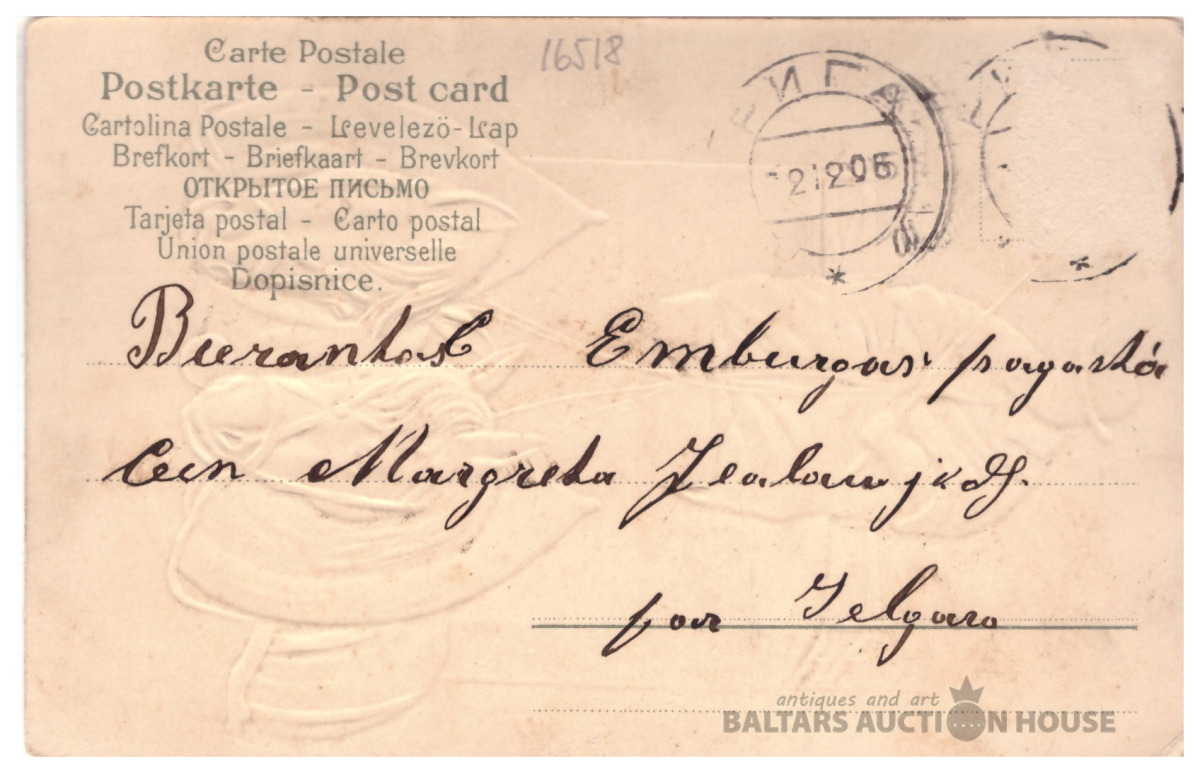 Carte Postale
16518
Postkarte - Post card
Cartolina Postale - Levelezö-Lap
Brefkort - Briefkaart - Brevkort
ОТКРЫТОЕ ПИСЬМО
Tarjeta postal - Carto postal
Union postale universelle
Dopisnice.
РИГА
21206
Emburgas pagastā
Margreta
par Jelgava
antiques and art
BALTARS AUCTION HOUSE